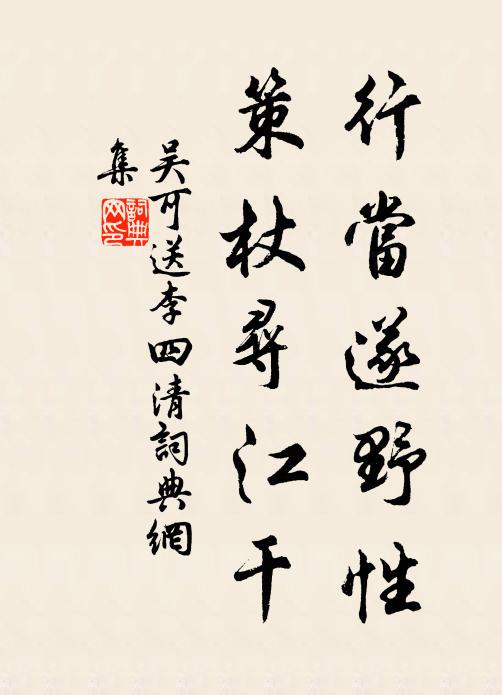 行當遂野性
策杖尋江干
吴可送李四清詞典網
集
詞典网印